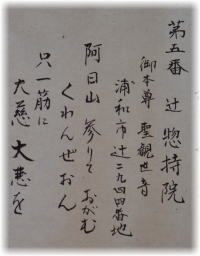 第五番 辻 惣持院
御本尊 聖観世音
浦和市辻二九四四番地
阿日山 参りて おがむ
くわんぜおん
只一筋に
大慈 大悲を